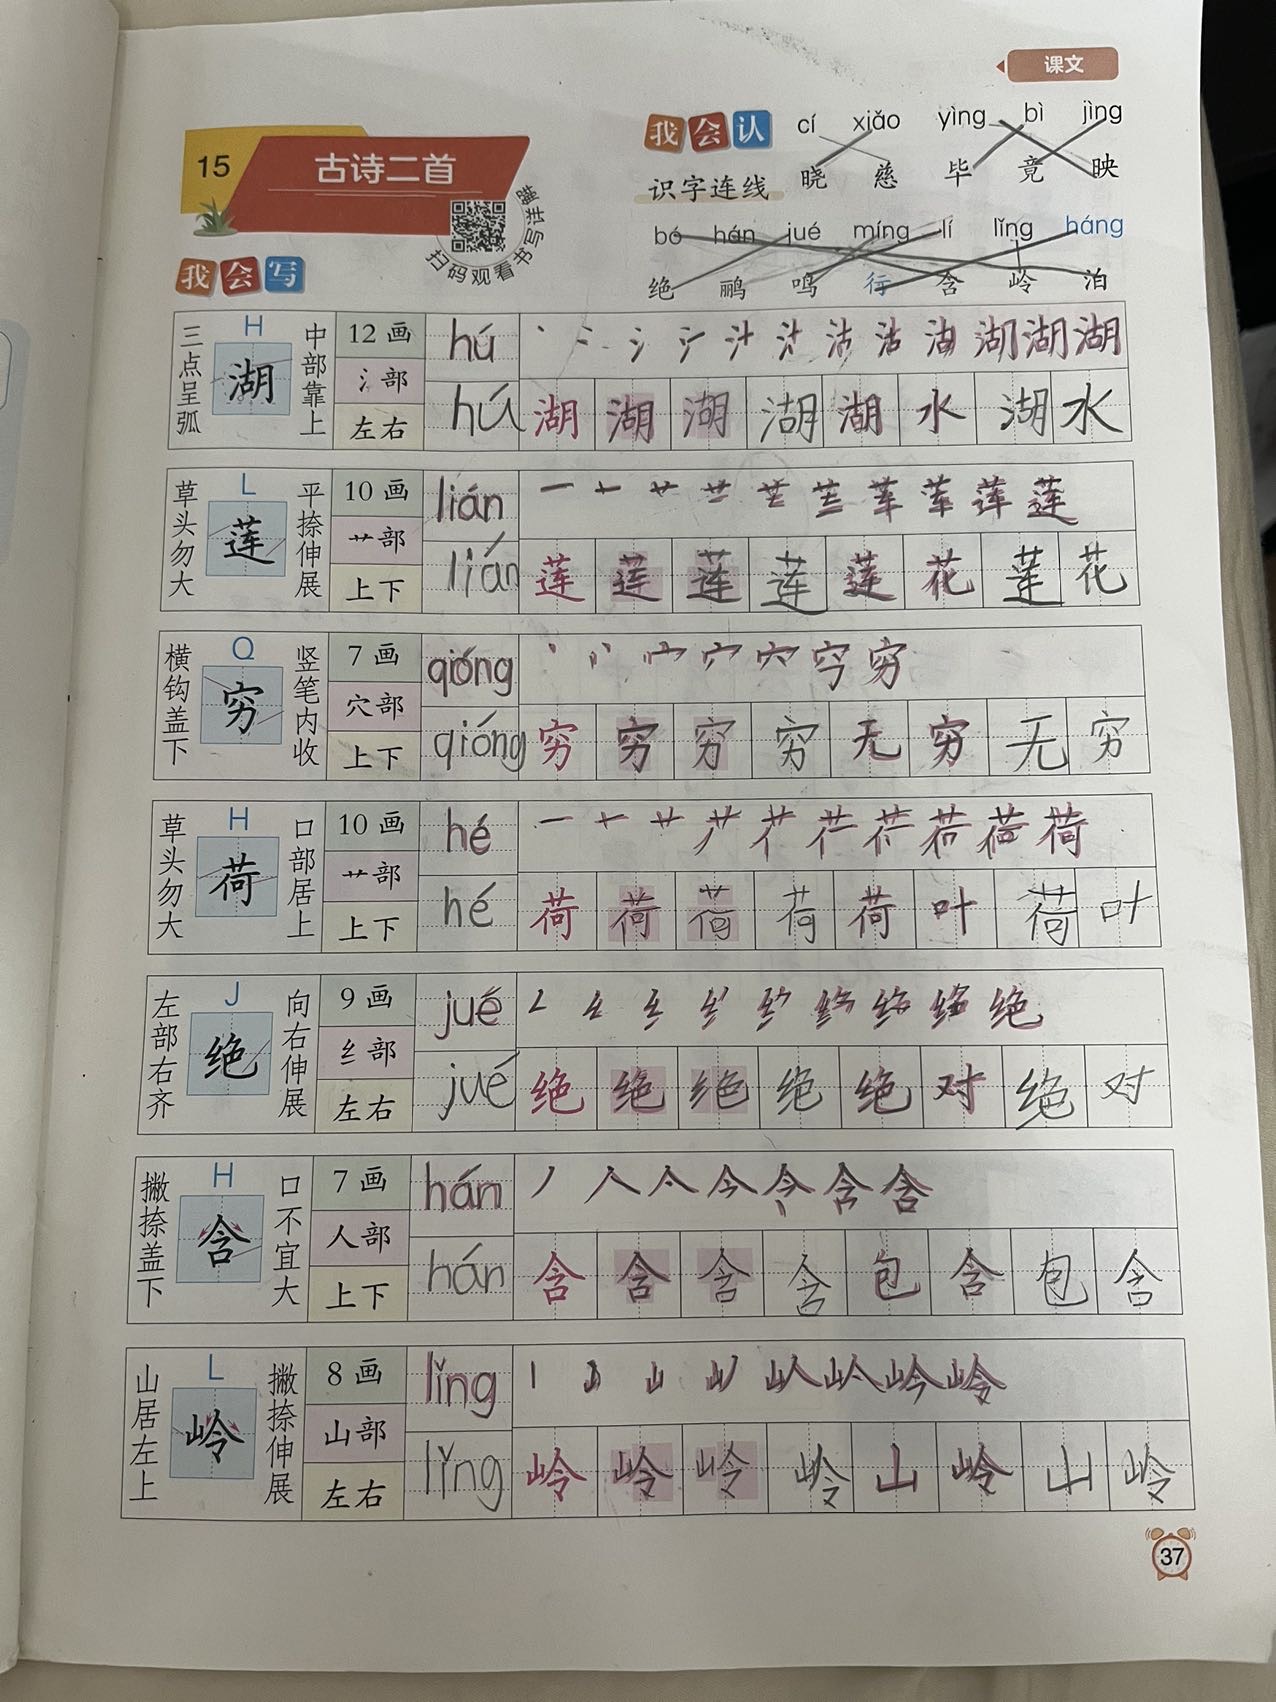 课文
15 古诗二首
扫码观看书写讲解
我会认
cí xiǎo yìng bì jìng
识字连线
晓 慈 毕 竟 映
bó hán jué míng lí lǐng háng
绝 鹂 鸣 行 含 岭 泊
我会写
三点呈弧
H
湖
中部靠上
12 画
氵部
左右
hú
湖 湖 湖
hú
湖 湖 湖 湖 湖 水 湖 水
草头勿大
L
莲
平捺伸展
10 画
艹部
上下
lián
莲
lián
莲 莲 莲 莲 莲 花 莲 花
横钩盖下
Q
穷
竖笔内收
7 画
穴部
上下
qióng
穷
qióng
穷 穷 穷 穷 无 穷 无 穷
草头勿大
H
荷
口部居上
10 画
艹部
上下
hé
荷
hé
荷 荷 荷 荷 荷 叶 荷 叶
左部右齐
J
绝
向右伸展
9 画
纟部
左右
jué
绝
jué
绝 绝 绝 绝 绝 对 绝 对
撇捺盖下
H
含
口不宜大
7 画
人部
上下
hán
丿 人 亽 今 含 含
hán
含 含 含 含 包 含 包 含
山居左上
L
岭
撇捺伸展
8 画
山部
左右
lǐng
岭
lǐng
岭 岭 岭 岭 山 岭 山 岭
37